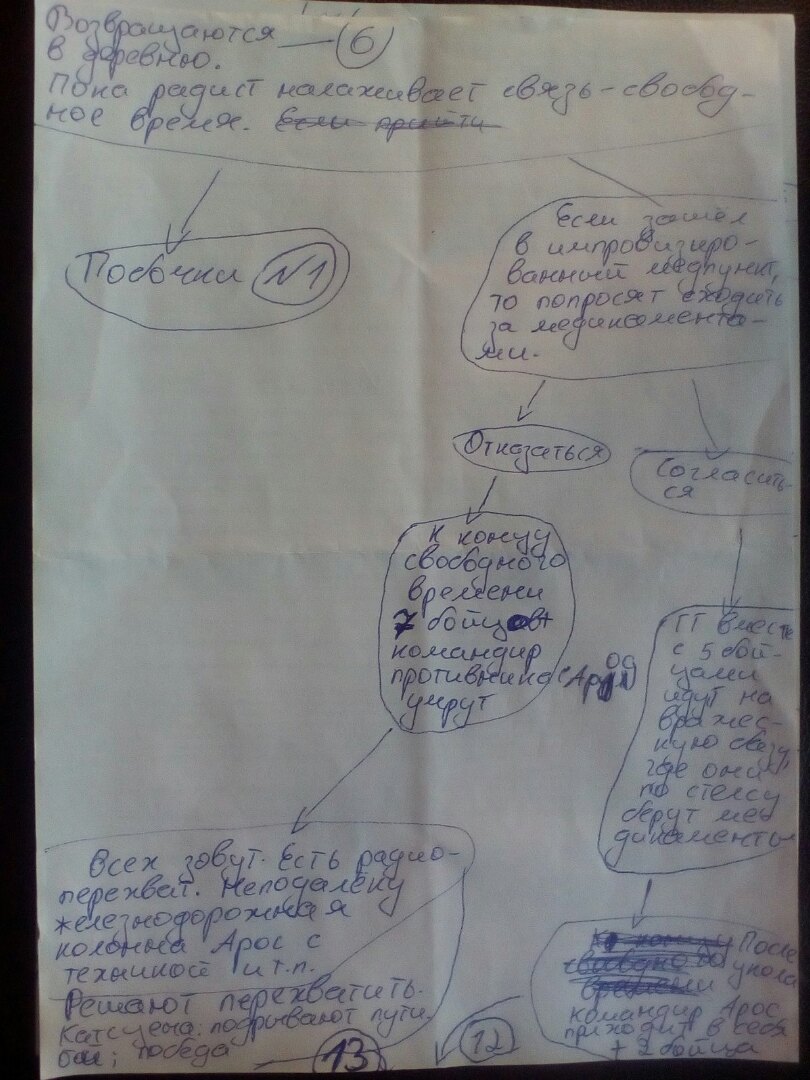 Возвращаются
в деревню.
6
Пока радист налаживает связь - свобод-
ное время. Если прийти
Побочки №1
Если зашёл
в импровизиро-
ванный медпункт,
то попросят сходить
за медикамента-
ми.
Отказаться
Согласить-
ся
К концу
свободного
времени
7 бойцов+
командир
противника (Арод)
умрут
ГГ вместе
с 5 бой-
цами
идут на
вражес-
кую базу
где они
по стелсу
берут мед
дикаменты
Всех зовут. Есть радио-
перехват. Неподалёку
железнодорожная
колонна Арос с
техникой и т.п.
Решают перехватить.
Катсцена: подрывают пути.
бой; победа
13
12
К концу После
свободного укола
времени
командир Арос
приходит в себя
+ 2 бойца